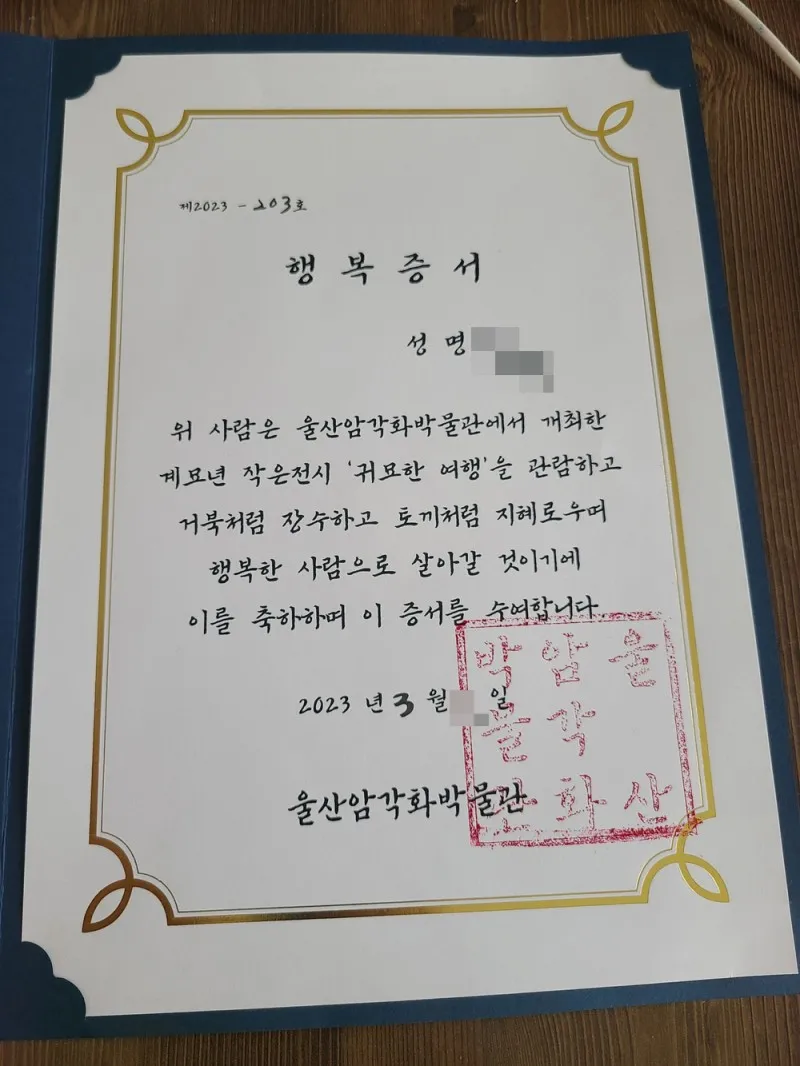 제2023 - 203호
행복증서
성 명
위 사람은 울산암각화박물관에서 개최한
계묘년 작은전시 '귀묘한 여행'을 관람하고
거북처럼 장수하고 토끼처럼 지혜로우며
행복한 사람으로 살아갈 것이기에
이를 축하하며 이 증서를 수여합니다.
2023 년 3 월 일
울산암각화박물관
울산
암각화
박물관